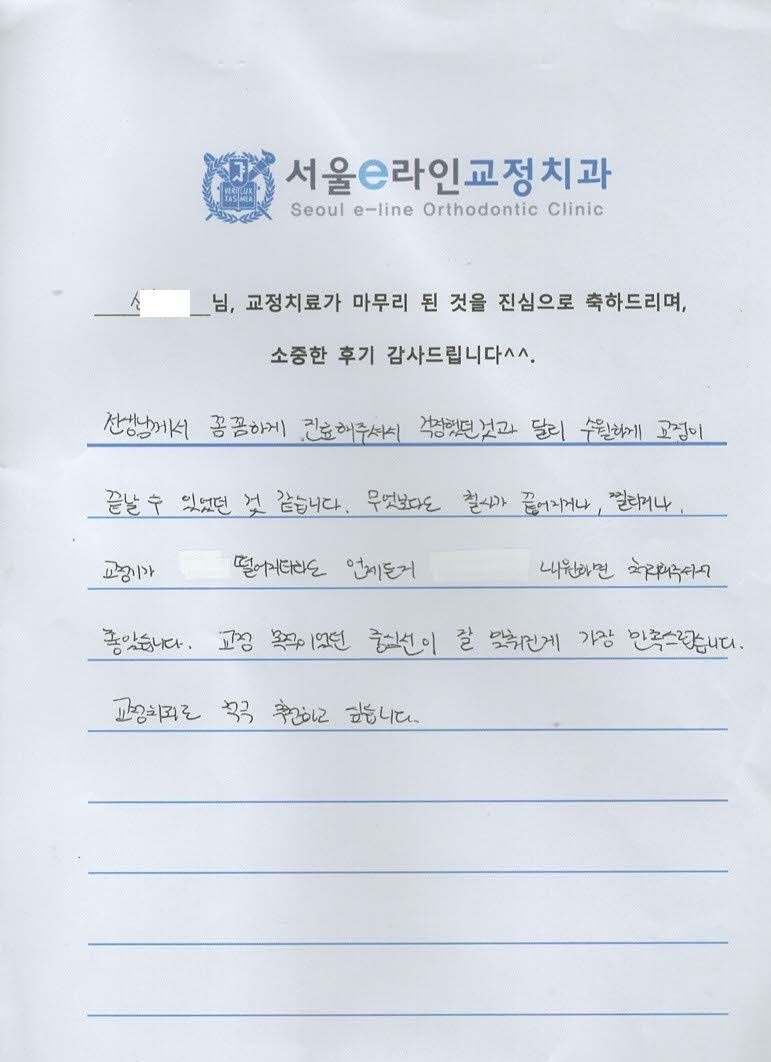 VERI LUX TAS MEA
서울e라인교정치과
Seoul e-line Orthodontic Clinic
님, 교정치료가 마무리 된 것을 진심으로 축하드리며,
소중한 후기 감사드립니다^^.
선생님께서 꼼꼼하게 진료해주셔서 걱정했던것과 달리 수월하게 교정이
끝날 수 있었던 것 같습니다. 무엇보다도 철사가 끊어지거나, 찔리거나,
교정기가 떨어지더라도 언제든지 내원하면 처리해주셔서
좋았습니다. 교정 목적이었던 중심선이 잘 맞춰진게 가장 만족스럽습니다.
교정치과로 적극 추천하고 싶습니다.